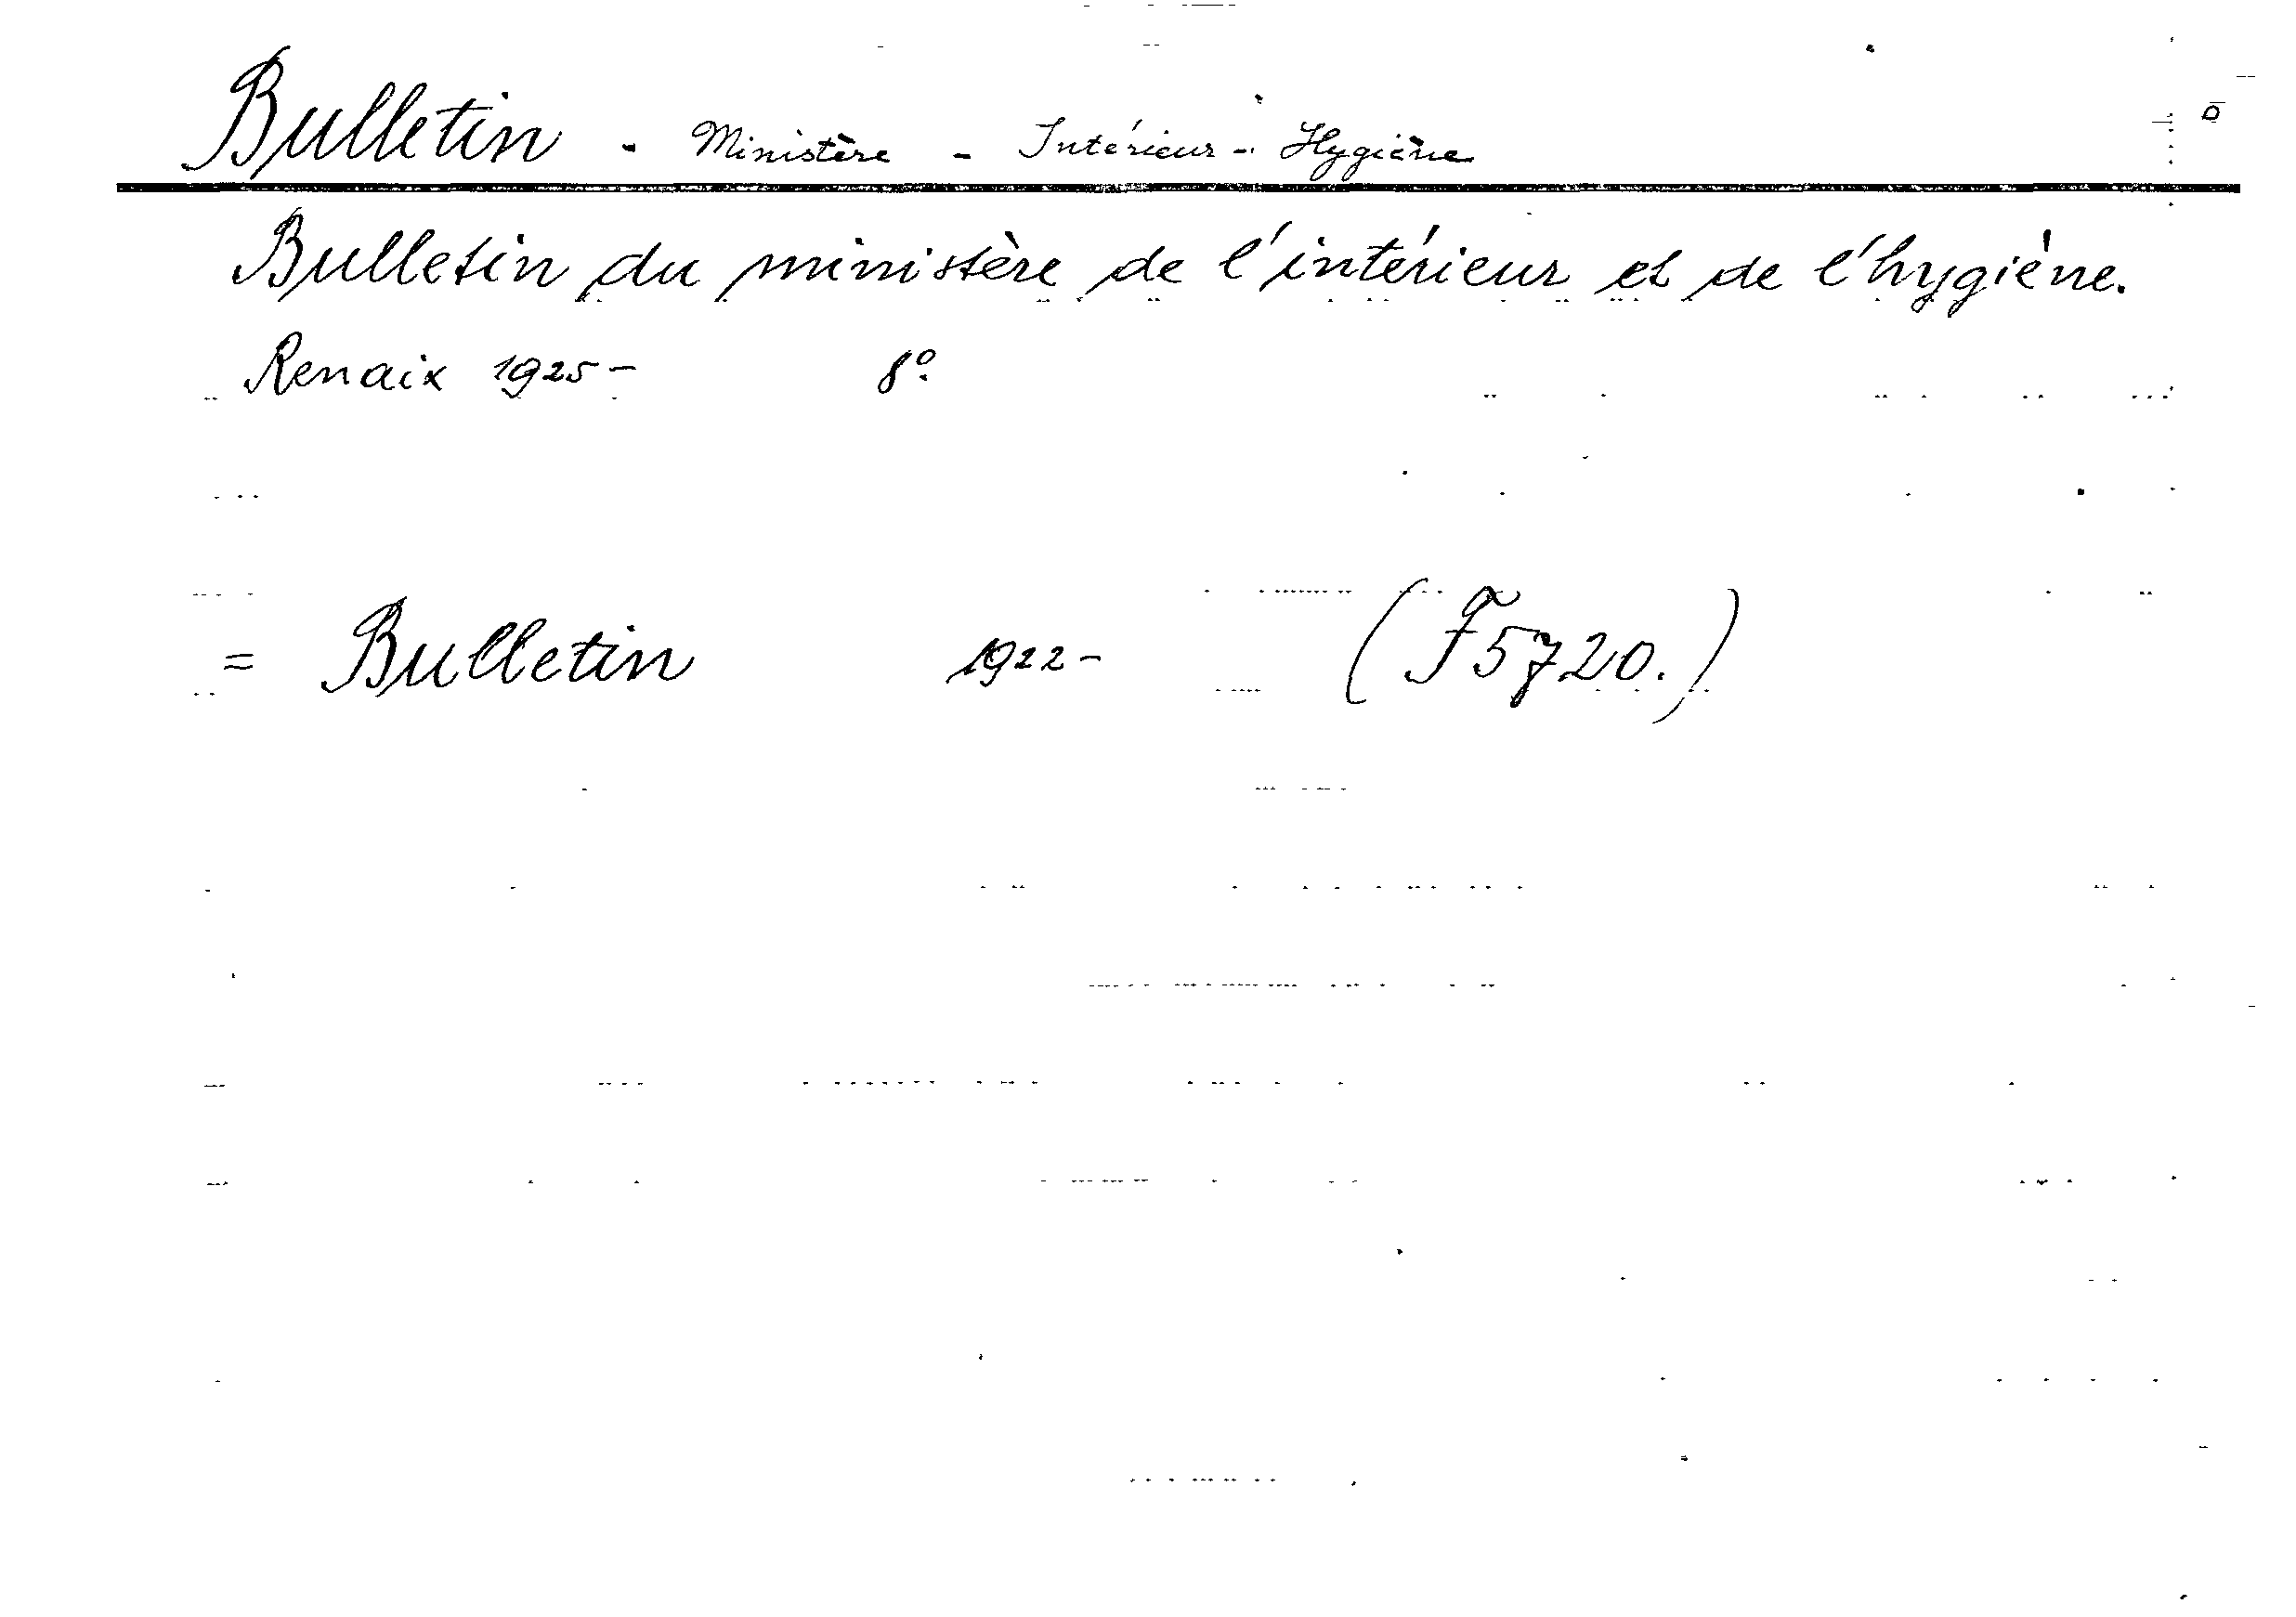 Bulletin - Ministère - Intérieur - Hygiène
Bulletin du ministère de l'intérieur et de l'hygiène.
Renaix 1925- 8º.
= Bulletin 1922- (F5720.)